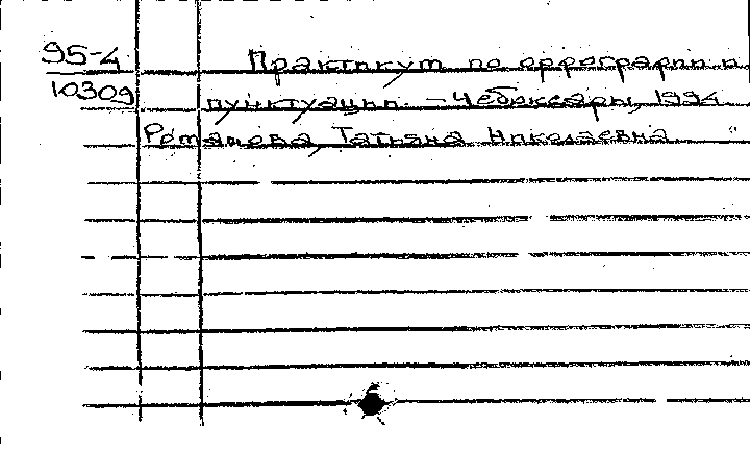 95-4 Практикум по орфографии и
10309 пунктуации. – Чебоксары, 1994
Романова Татьяна Николаевна